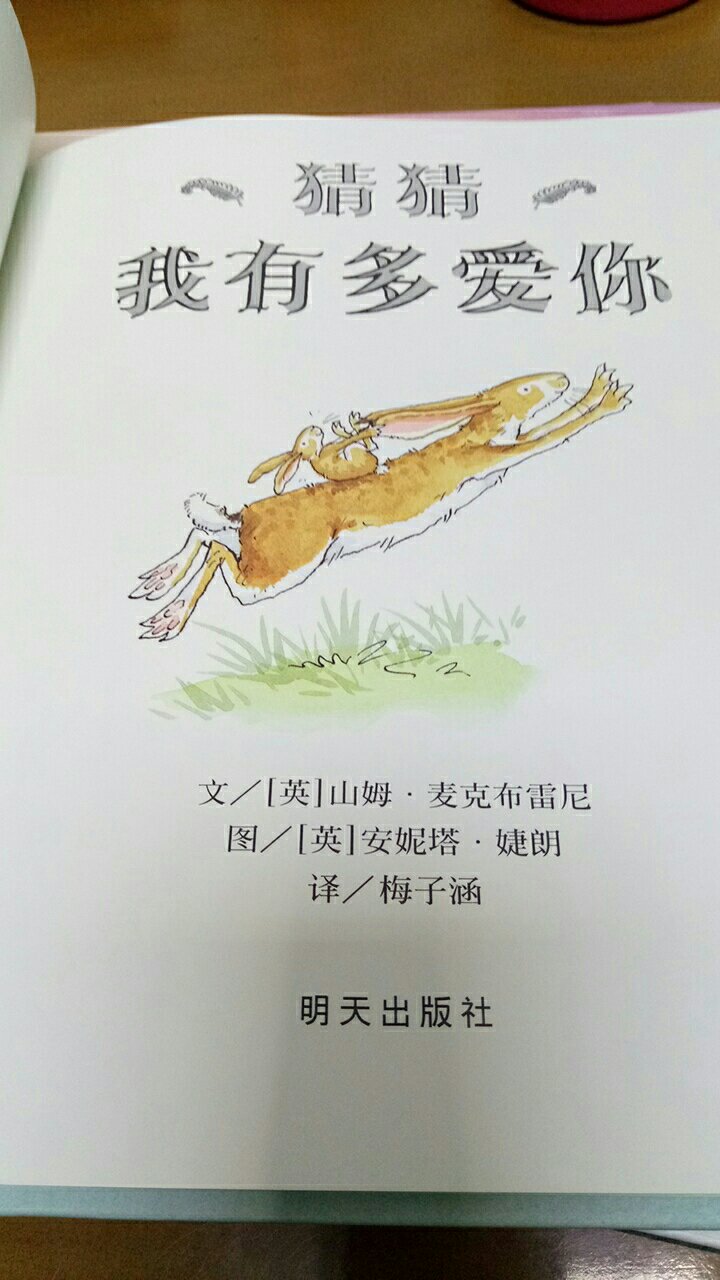 猜猜
我有多愛你
文／[英]山姆·麦克布雷尼
图／[英]安妮塔·婕朗
译／梅子涵
明天出版社